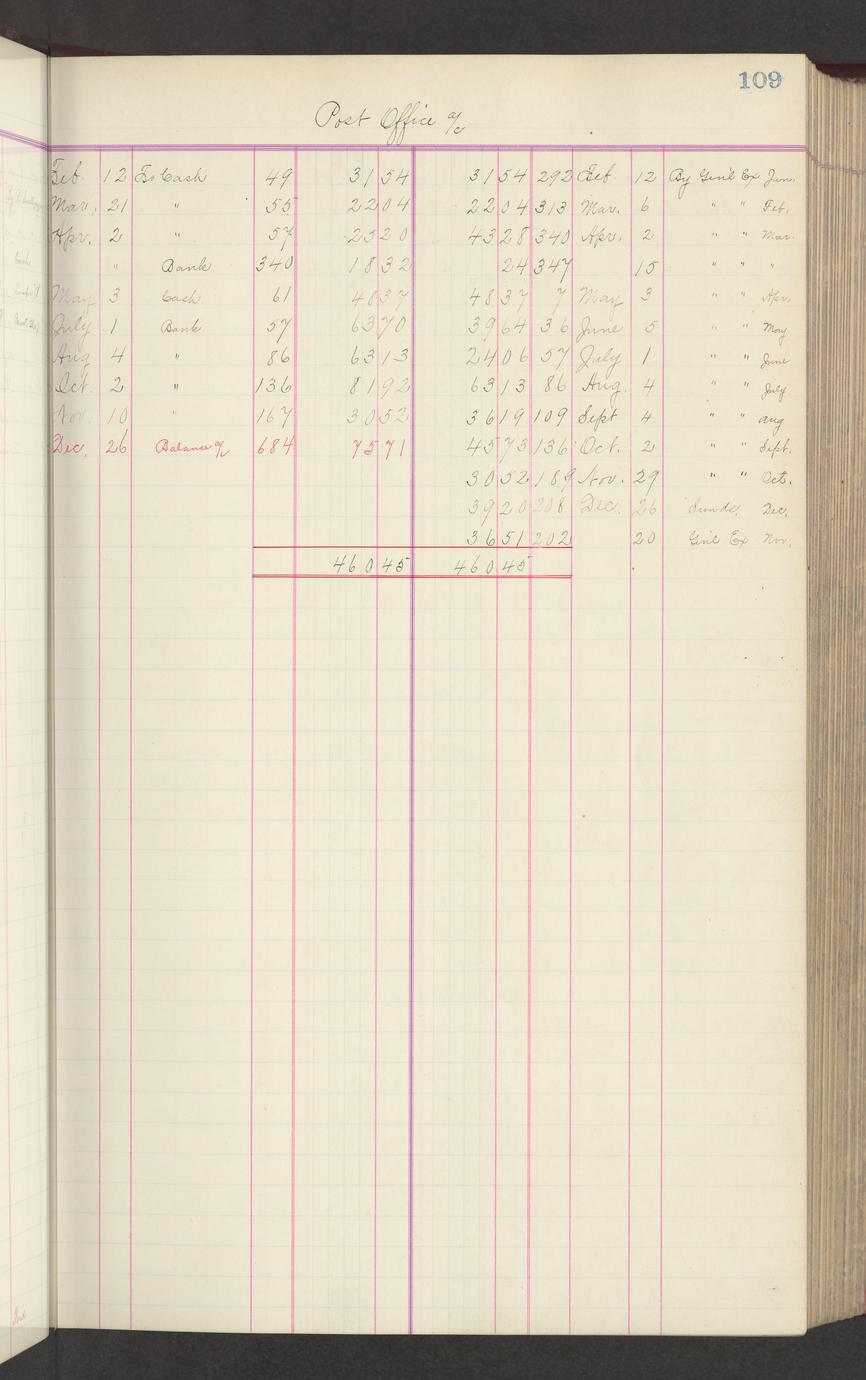 109
Post Office a/c
Feb 12 To Cash 49 31 54 31 54 292 Feb 12 By Gen'l Ex Jan.
Mar. 21 " 55 22 04 22 04 313 Mar. 6 " " Feb.
Apr. 2 " 57 25 20 43 28 340 Apr. 2 " " Mar.
" Bank 340 18 32 24 347 15 " " "
May 3 Cash 61 48 37 48 37 7 May 3 " " Apr.
July 1 Bank 57 63 70 39 64 36 June 5 " " May
Aug 4 " 86 63 13 24 06 57 July 1 " " June
Oct. 2 " 136 81 92 63 13 86 Aug. 4 " " July
Nov. 10 " 167 30 52 36 19 109 Sept 4 " " Aug
Dec. 26 Balance a/c 684 75 71 45 73 136 Oct. 2 " " Sept.
30 52 189 Nov. 29 " " Oct.
39 20 208 Dec. 26 Sunds. Dec.
36 51 202 20 Gen'l Ex Nov.
460 45 460 45